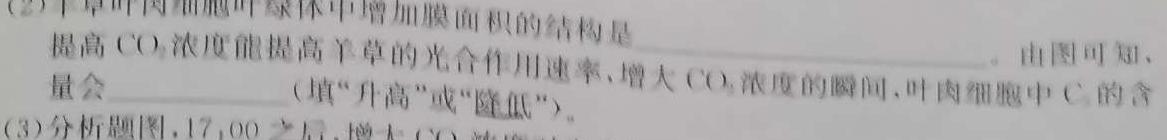 (2)羊草叶肉细胞叶绿体中增加膜面积的结构是____________。由图可知,
提高CO₂浓度能提高羊草的光合作用速率,增大CO₂浓度的瞬间,叶肉细胞中C₃的含
量会________(填“升高”或“降低”)。
(3)分析题图,17:00之后,增大CO₂浓度